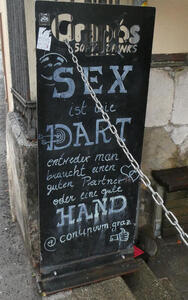 Grapos
SOFTDRINKS
SEX
ist wie
DART
entweder man
braucht einen
guten Partner
oder eine gute
HAND
@ continuum.graz